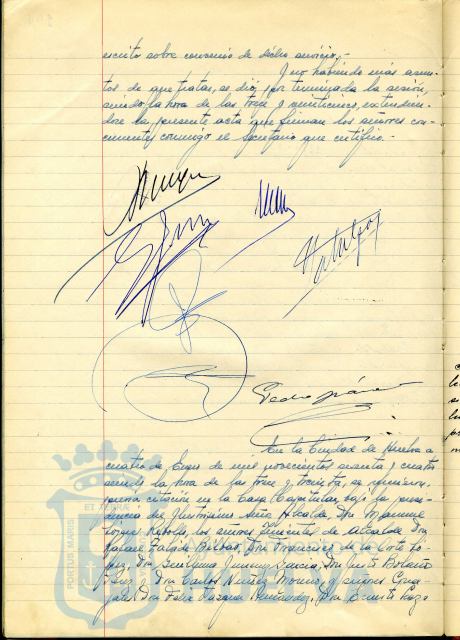 escrito sobre convenio de dicho servicio.-
Y no habiendo más asun-
tos de que tratar, se dió por terminada la sesión,
siendo la hora de las trece y veinticinco, extendien-
dose la presente acta que firman los señores con-
currentes conmigo el Secretario que certifico.-
Pedro
En la Ciudad de Huelva a
cuatro de Enero de mil novecientos sesenta y cuatro
siendo la hora de las trece y treinta, se reunieron,
previa citación en la Casa Capitular, bajo la presi-
dencia del Ilustrísimo Señor Alcalde, Don Manuel
López Rebollo, los señores Tenientes de Alcalde Don
Rafael Bilbao, Don Francisco de la Corte Ló-
pez, Don Guillermo García, Don Justo Bolaño
y Don Carlos Núñez Moreno, y señores Conce-
jales Don Félix Vázquez Fernández, Don Benito
PORTUS MARIS
ET TERRAE